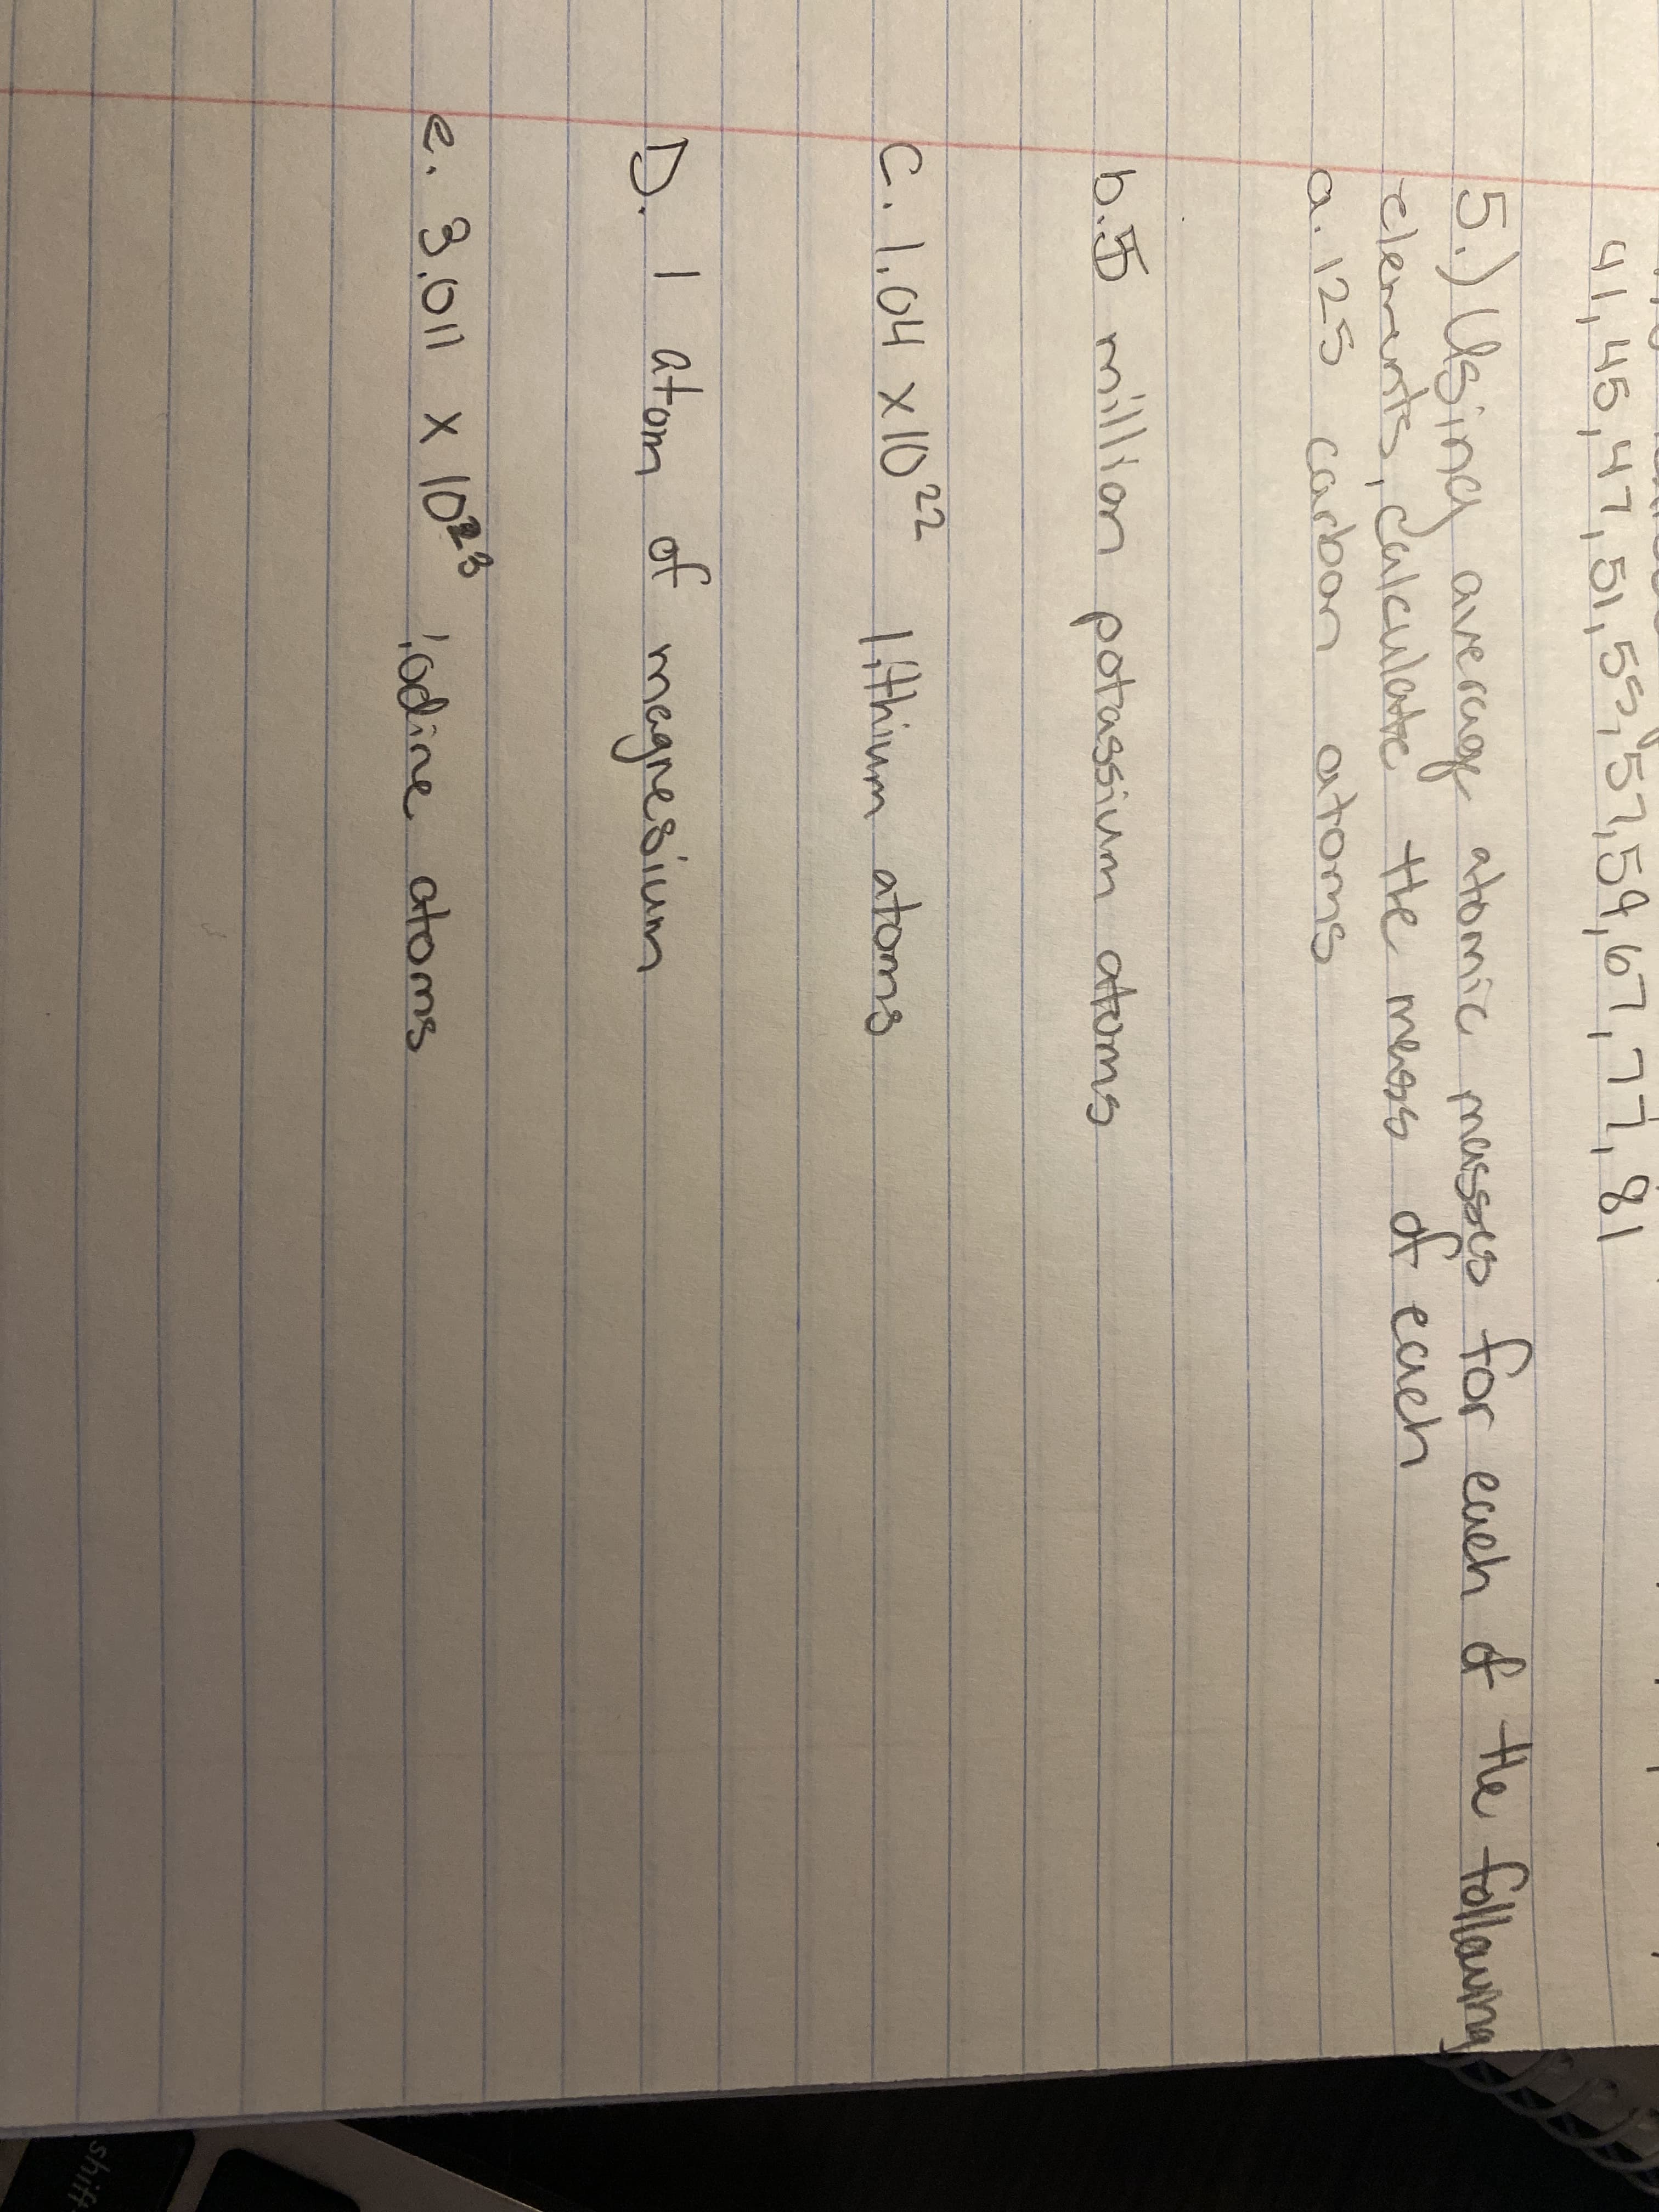 41, 45, 47, 51, 55, 57, 59, 67, 77, 81
5.) Using average atomic masses for each of the following
elements, calculate the mass of each
a. 125 carbon atoms
b. 5 million potassium atoms
C. 1.04 x 10²² lithium atoms
D. 1 atom of magnesium
e. 3.011 x 10²³ iodine atoms
shift